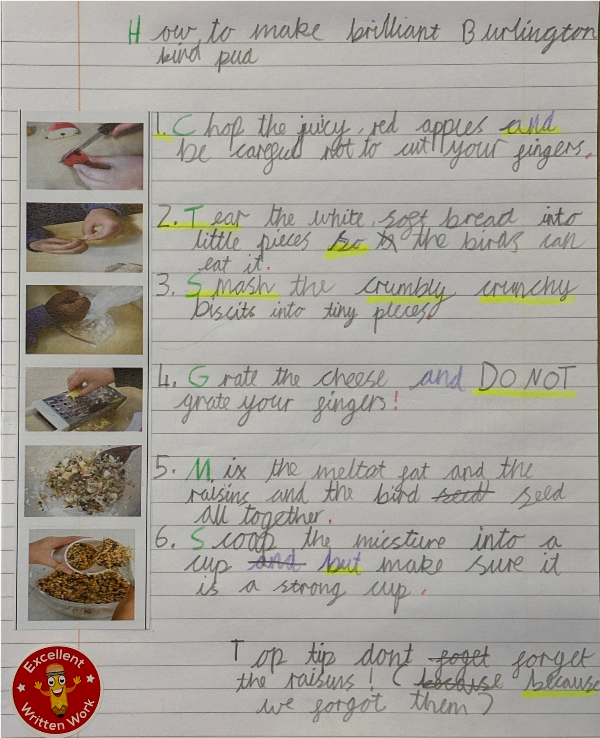 How to make brilliant Burlington
bird pud
1. Chop the juicy, red apples and
be careful not to cut your fingers.
2. Tear the white, soft bread into
little pieces so the birds can
eat it.
3. Smash the crumbly crunchy
biscits into tiny pieces.
4. Grate the cheese and DO NOT
grate your fingers!
5. Mix the meltat fat and the
raisins and the bird seed seed
all together.
6. Scoop the micsture into a
cup and but make sure it
is a strong cup.
Top tip dont foget forget
the raisins! (because because
we forgot them)
Excellent
Written Work